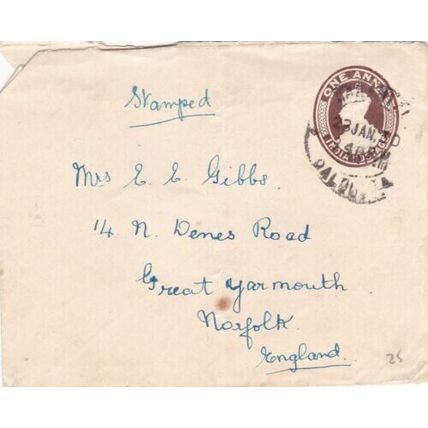 Stamped
ONE ANNA
INDIA POSTAGE
JAN.
CALCUTTA
Mrs E. E. Gibbs.
14 N. Denes Road
Great Yarmouth
Norfolk.
England.
25